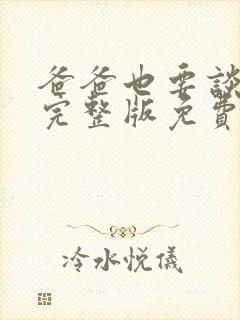 爸爸也要談
完整版免費
冷水悅儀